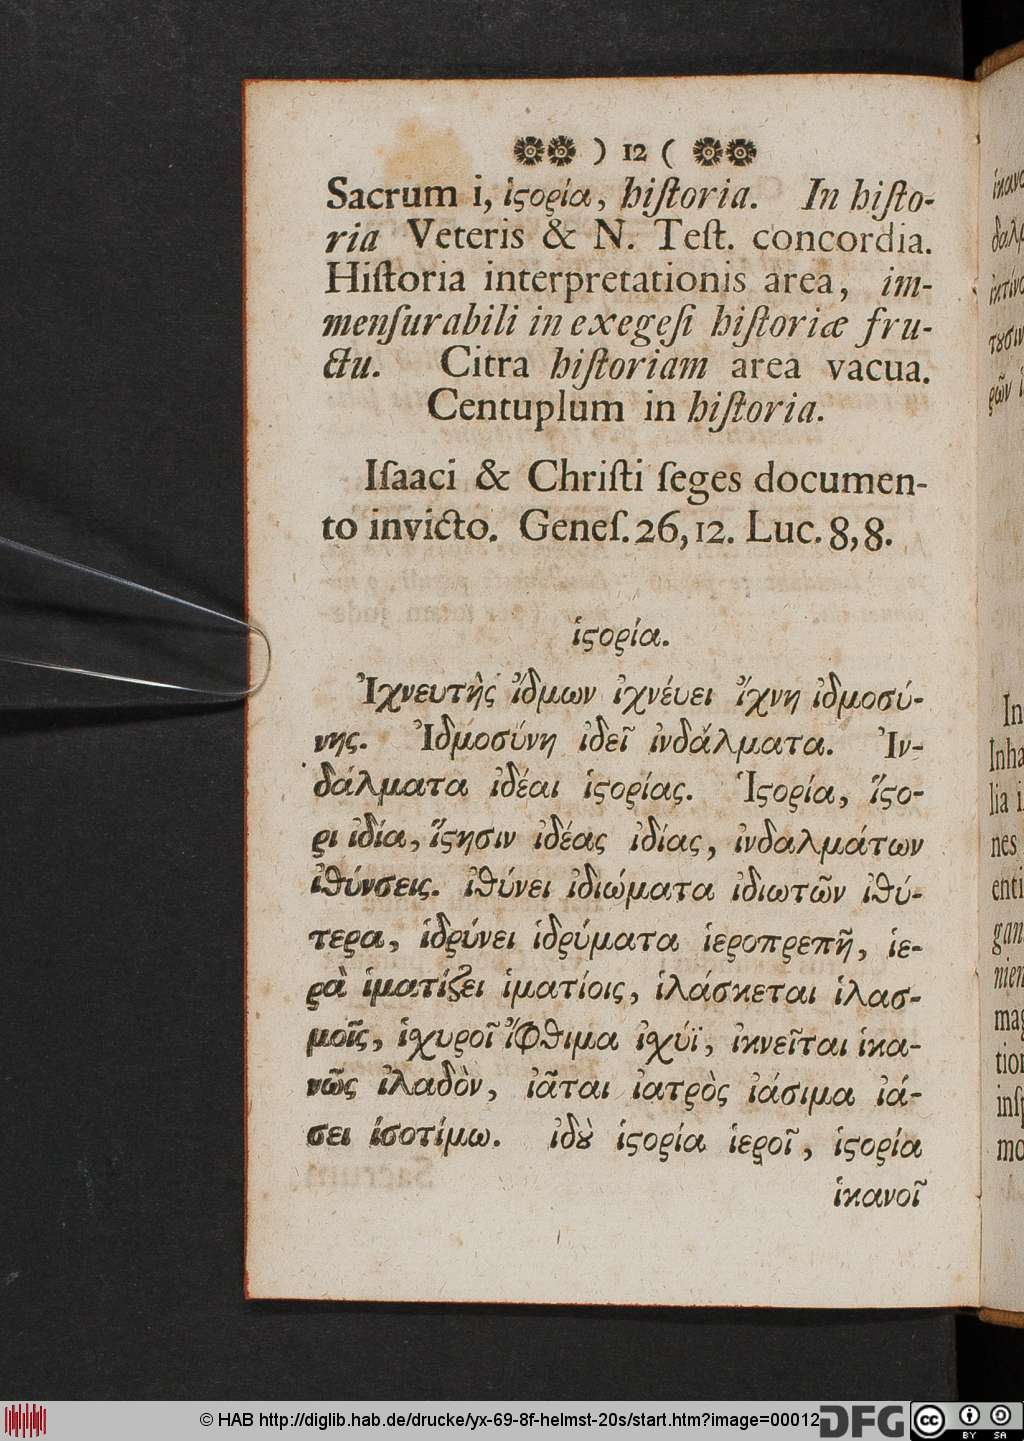 ) 12 (
Sacrum i, ἱϛορία, hiſtoria. In hiſto-
ria Veteris & N. Teſt. concordia.
Hiſtoria interpretationis area, im-
menſurabili in exegeſi hiſtoriæ fru-
ctu. Citra hiſtoriam area vacua.
Centuplum in hiſtoria.
Iſaaci & Chriſti ſeges documen-
to invicto. Geneſ. 26, 12. Luc. 8, 8.
ἱϛορία.
Ἰχνευτὴς ἴδμων ἰχνέυει ἴχνη ἰδμοσύ-
νης. Ἰδμοσύνη ἰδεῖ ἰνδάλματα. Ἰν-
δάλματα ἰδέαι ἱϛορίας. Ἱϛορία, ἵϛο-
ρι ἰδία, ἵϛησιν ἰδέας ἰδίας, ἰνδαλμάτων
ἰθύνσεις. ἰθύνει ἰδιώματα ἰδιωτῶν ἰθύ-
τερα, ἱδρύνει ἱδρύματα ἱεροπρεπῆ, ἱε-
ρὰ ἱματίζει ἱματίοις, ἱλάσκεται ἱλασ-
μοῖς, ἰχυροῖ ἴφθιμα ἰχύϊ, ἱκνεῖται ἱκα-
νῶς ἰλαδὸν, ἰᾶται ἰατρὸς ἰάσιμα ἰά-
σει ἰσοτίμω. ἰδȣ̀ ἱϛορία ἱεροῖ, ἱϛορία
ἱκανοῖ
In
Inha
lia i
nes
enti
gan
nien
mag
tion
inſp
mo
© HAB http://diglib.hab.de/drucke/yx-69-8f-helmst-20s/start.htm?image=00012
DFG
cc
BY SA